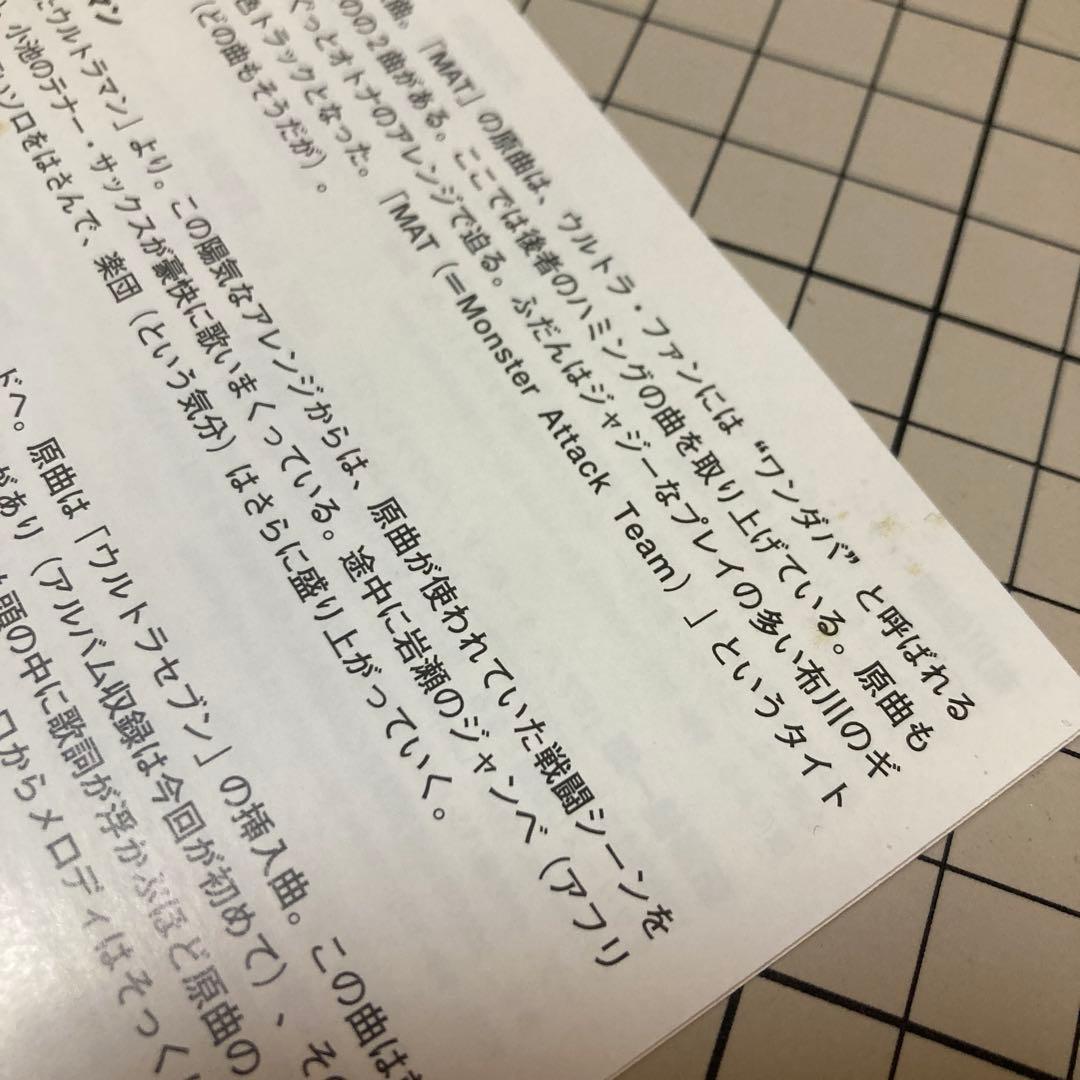 曲。「MAT」の原曲は、ウルトラ・ファンには“ワンダバ”と呼ばれる
のの2曲がある。ここでは後者のハミングの曲を取り上げている。原曲も
ぐっとオトナのアレンジで迫る。ふだんはジャジーなプレイの多い布川のギ
色トラックとなった。「MAT（＝Monster Attack Team）」というタイト
（どの曲もそうだが）。
マン
たウルトラマン」より。この陽気なアレンジからは、原曲が使われていた戦闘シーンを
、小池のテナー・サックスが豪快に歌いまくっている。途中に岩瀬のジャンベ（アフリ
ソロをはさんで、楽団（という気分）はさらに盛り上がっていく。
ドへ。原曲は「ウルトラセブン」の挿入曲。この曲は
があり（アルバム収録は今回が初めて）、その
頭の中に歌詞が浮かぶほど原曲の
ロからメロディはそっく